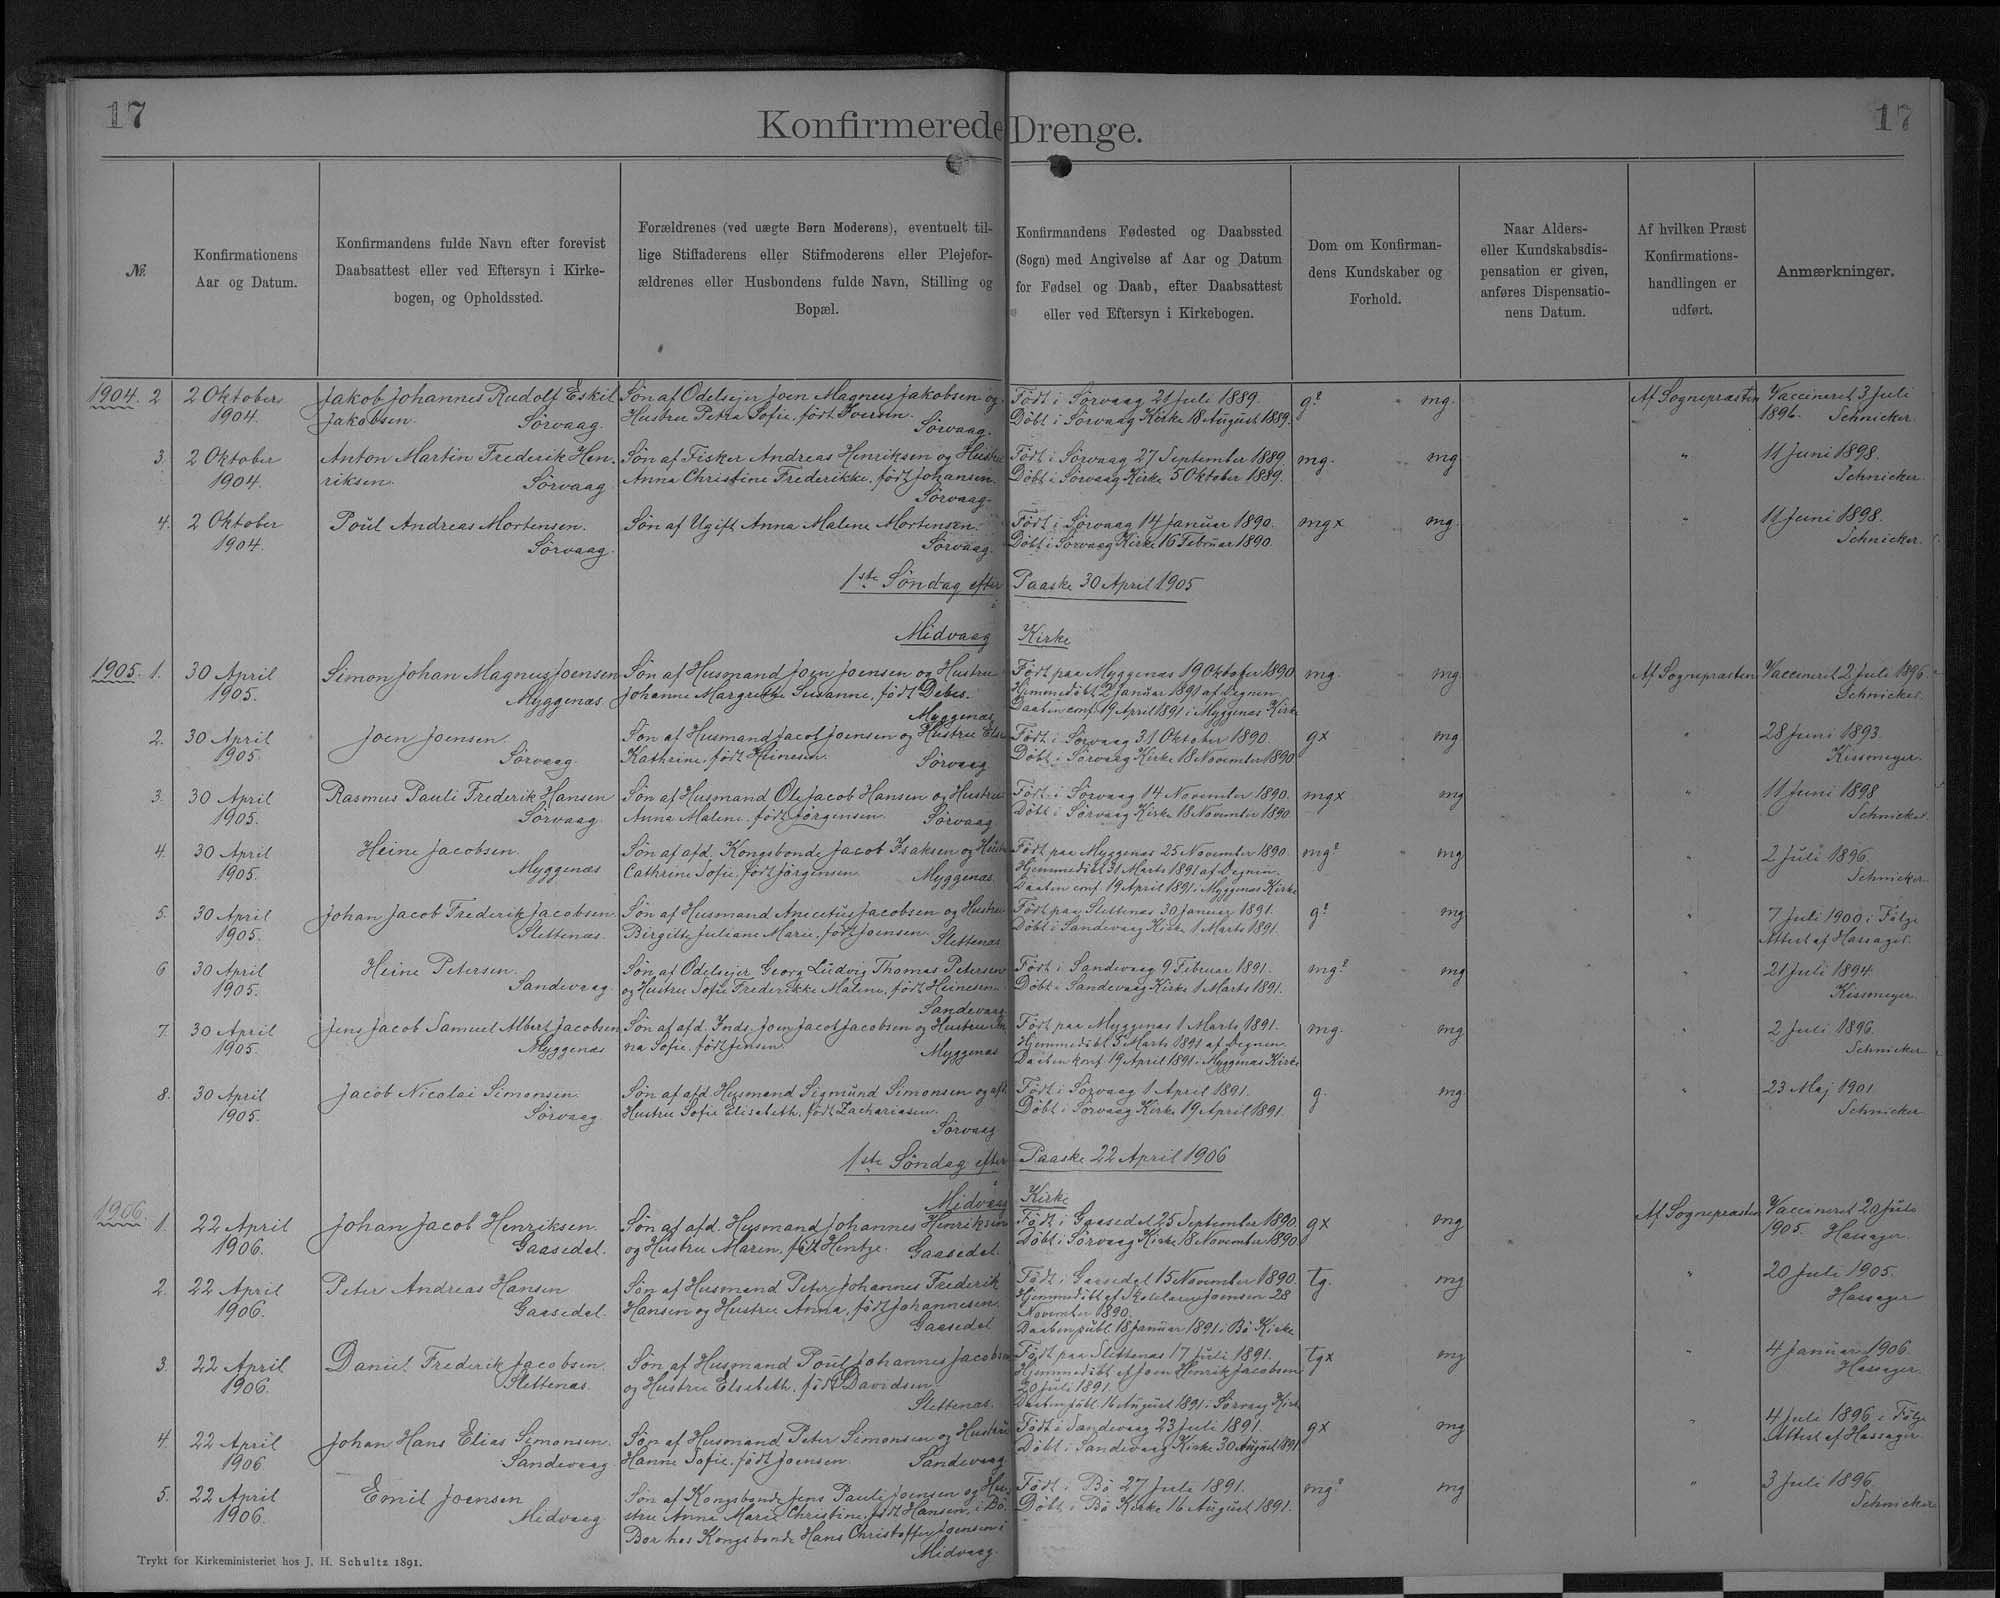 17
Konfirmerede Drenge.
17
Nr.
Konfirmationens
Aar og Datum.
Konfirmandens fulde Navn efter forevist
Daabsattest eller ved Eftersyn i Kirke-
bogen, og Opholdssted.
Forældrenes (ved uægte Børn Moderens), eventuelt til-
lige Stiffaderens eller Stifmoderens eller Plejefor-
ældrenes eller Husbondens fulde Navn, Stilling og
Bopæl.
Konfirmandens Fødested og Daabssted
(Sogn) med Angivelse af Aar og Datum
for Fødsel og Daab, efter Daabsattest
eller ved Eftersyn i Kirkebogen.
Dom om Konfirman-
dens Kundskaber og
Forhold.
Naar Alders-
eller Kundskabsdis-
pensation er given,
anføres Dispensatio-
nens Datum.
Af hvilken Præst
Konfirmations-
handlingen er
udført.
Anmærkninger.
1904. 2 2 Oktober
1904.
Jakob Johannes Rudolf Eskil
Jakobsen. Sörvaag.
Søn af Odelsejer Joen Magnus Jakobsen og
Hustru Petra Sofie, født Iversen.
Sörvaag.
Født i Sörvaag 21 Juli 1889.
Döbt i Sörvaag Kirke 18 August 1889.
g? mg.
Af Sognepræsten
Vaccineret 3 Juli
1896. Schnicker.
3. 2 Oktober
1904.
Anton Martin Frederik Hen-
riksen. Sörvaag
Søn af Fisker Andreas Henriksen og Hustru
Anna Christine Frederikke, født Johansen.
Sörvaag.
Født i Sörvaag 27 September 1889.
Döbt i Sörvaag Kirke 5 Oktober 1889.
mg. mg
"
11 Juni 1898.
Schnicker.
4. 2 Oktober
1904.
Poul Andreas Mortensen.
Sörvaag.
Søn af Ugift Anna Malene Mortensen.
Sörvaag.
Født i Sörvaag 14 Januar 1890.
Döbt i Sörvaag Kirke 16 Februar 1890.
mgx mg.
"
11 Juni 1898.
Schnicker.
1ste Söndag efter Paaske 30 April 1905
Midvaag Kirke
1905. 1. 30 April
1905.
Simon Johan Magnus Joensen
Myggenæs
Søn af Husmand Joen Joensen og Hustru
Johanne Margrethe Susanne, født Debes.
Myggenæs
Født paa Myggenæs 19 Oktober 1890
Hjemmedöbt 2 Januar 1891 af Degnen.
Daaben conf. 19 April 1891 i Myggenæs Kirke
mg. mg
Af Sognepræsten
Vaccineret 2 Juli 1896.
Schnicker.
2. 30 April
1905.
Joen Joensen.
Sörvaag.
Søn af Husmand Jacob Joensen og Hustru Else
Kathrine, født Heinesen.
Sörvaag
Født i Sörvaag 31 Oktober 1890.
Döbt i Sörvaag Kirke 18 November 1890
gx mg
"
28 Juni 1893.
Kissmeyer.
3. 30 April
1905.
Rasmus Pauli Frederik Hansen
Sörvaag.
Søn af Husmand Ole Jacob Hansen og Hustru
Anna Malene, født Jørgensen. Sörvaag
Født i Sörvaag 14 November 1890.
Döbt i Sörvaag Kirke 18 November 1890.
mgx mg
"
11 Juni 1898
Schnicker.
4. 30 April
1905.
Heine Jacobsen.
Myggenæs
Søn af afd. Kongsbonde Jacob Isaksen og Hustru
Cathrine Sofie, født Jørgensen. Myggenæs.
Født paa Myggenæs 25 November 1890.
Hjemmedöbt 31 Marts 1891 af Degnen.
Daaben conf. 19 April 1891 i Myggenæs Kirke
mg? mg
"
2 Juli 1896.
Schnicker.
5. 30 April
1905.
Johan Jacob Frederik Jacobsen.
Slettenæs.
Søn af Husmand Anicetus Jacobsen og Hustru
Birgitte Juliane Marie, født Joensen. Slettenæs
Født paa Slettenæs 30 Januar 1891.
Döbt i Sandevaag Kirke 1 Marts 1891.
g? mg
"
7 Juli 1900 i Følge
Attest af Hassager.
6 30 April
1905.
Heine Petersen.
Sandevaag.
Søn af Odelsejer Georg Ludvig Thomas Petersen
og Hustru Sofie Frederikke Malene, født Heinesen.
Sandevaag
Født i Sandevaag 9 Februar 1891.
Döbt i Sandevaag Kirke 1 Marts 1891.
mg? mg
"
21 Juli 1894.
Kissmeyer.
7. 30 April
1905.
Jens Jacob Samuel Albert Jacobsen
Myggenæs
Søn af afd. Inds. Joen Jacob Jacobsen og Hustru An
na Sofie, født Jensen. Myggenæs
Født paa Myggenæs 1 Marts 1891.
Hjemmedöbt 5 Marts 1891 af Degnen.
Daaben konf. 19 April 1891 i Myggenæs Kirke
mg. mg
"
2 Juli 1896.
Schnicker
8. 30 April
1905.
Jacob Nicolai Simonsen.
Sörvaag.
Søn af afd. Husmand Sigmund Simonsen og afd.
Hustru Sofie Elisabeth, født Zachariasen.
Sörvaag
Født i Sörvaag 1 April 1891.
Döbt i Sörvaag Kirke 19 April 1891.
g. mg
"
23 Maj 1901.
Schnicker
1ste Söndag efter Paaske 22 April 1906
Midvaag Kirke
1906. 1. 22 April
1906.
Johan Jacob Henriksen.
Gaasedal.
Søn af afd. Husmand Johannes Henriksen
og Hustru Maren, født Hentze. Gaasedal.
Født i Gaasedal 25 September 1890
Döbt i Sörvaag Kirke 18 November 1890
gx mg
Af Sognepræsten
Vaccineret 20 Juli
1905. Hassager.
2. 22 April
1906.
Peter Andreas Hansen
Gaasedal.
Søn af Husmand Peter Johannes Frederik
Hansen og Hustru Anna, født Johannesen.
Gaasedal
Født i Gaasedal 15 November 1890.
Hjemmedöbt af Skolelærer Joensen 28
November 1890.
Daaben publ. 18 Januar 1891 i Bö Kirke
tg. mg
"
20 Juli 1905.
Hassager
3. 22 April
1906.
Daniel Frederik Jacobsen.
Slettenæs.
Søn af Husmand Poul Johannes Jacobsen
og Hustru Elsebeth, født Davidsen
Slettenæs.
Født paa Slettenæs 17 Juli 1891.
Hjemmedöbt af Joen Henrik Jacobsen
20 Juli 1891.
Daaben publ. 16 August 1891 i Sörvaag Kirke
tgx mg
"
4 Januar 1906.
Hassager.
4. 22 April
1906.
Johan Hans Elias Simonsen.
Sandevaag
Søn af Husmand Peter Simonsen og Hustru
Hanne Sofie, født Joensen. Sandevaag
Født i Sandevaag 23 Juli 1891.
Döbt i Sandevaag Kirke 30 August 1891
gx mg
"
4 Juli 1896 i Følge
Attest af Hassager.
5. 22 April
1906.
Emil Joensen
Midvaag
Søn af Kongsbonde Jens Pauli Joensen og Hu-
stru Anna Marie Christine, født Hansen, i Bö.
Bor hos Kongsbonde Hans Christoffer Joensen i
Midvaag.
Født i Bö 27 Juli 1891.
Döbt i Bö Kirke 16 August 1891.
mg? mg
"
3 Juli 1896.
Schnicker
Trykt for Kirkeministeriet hos J. H. Schultz 1891.